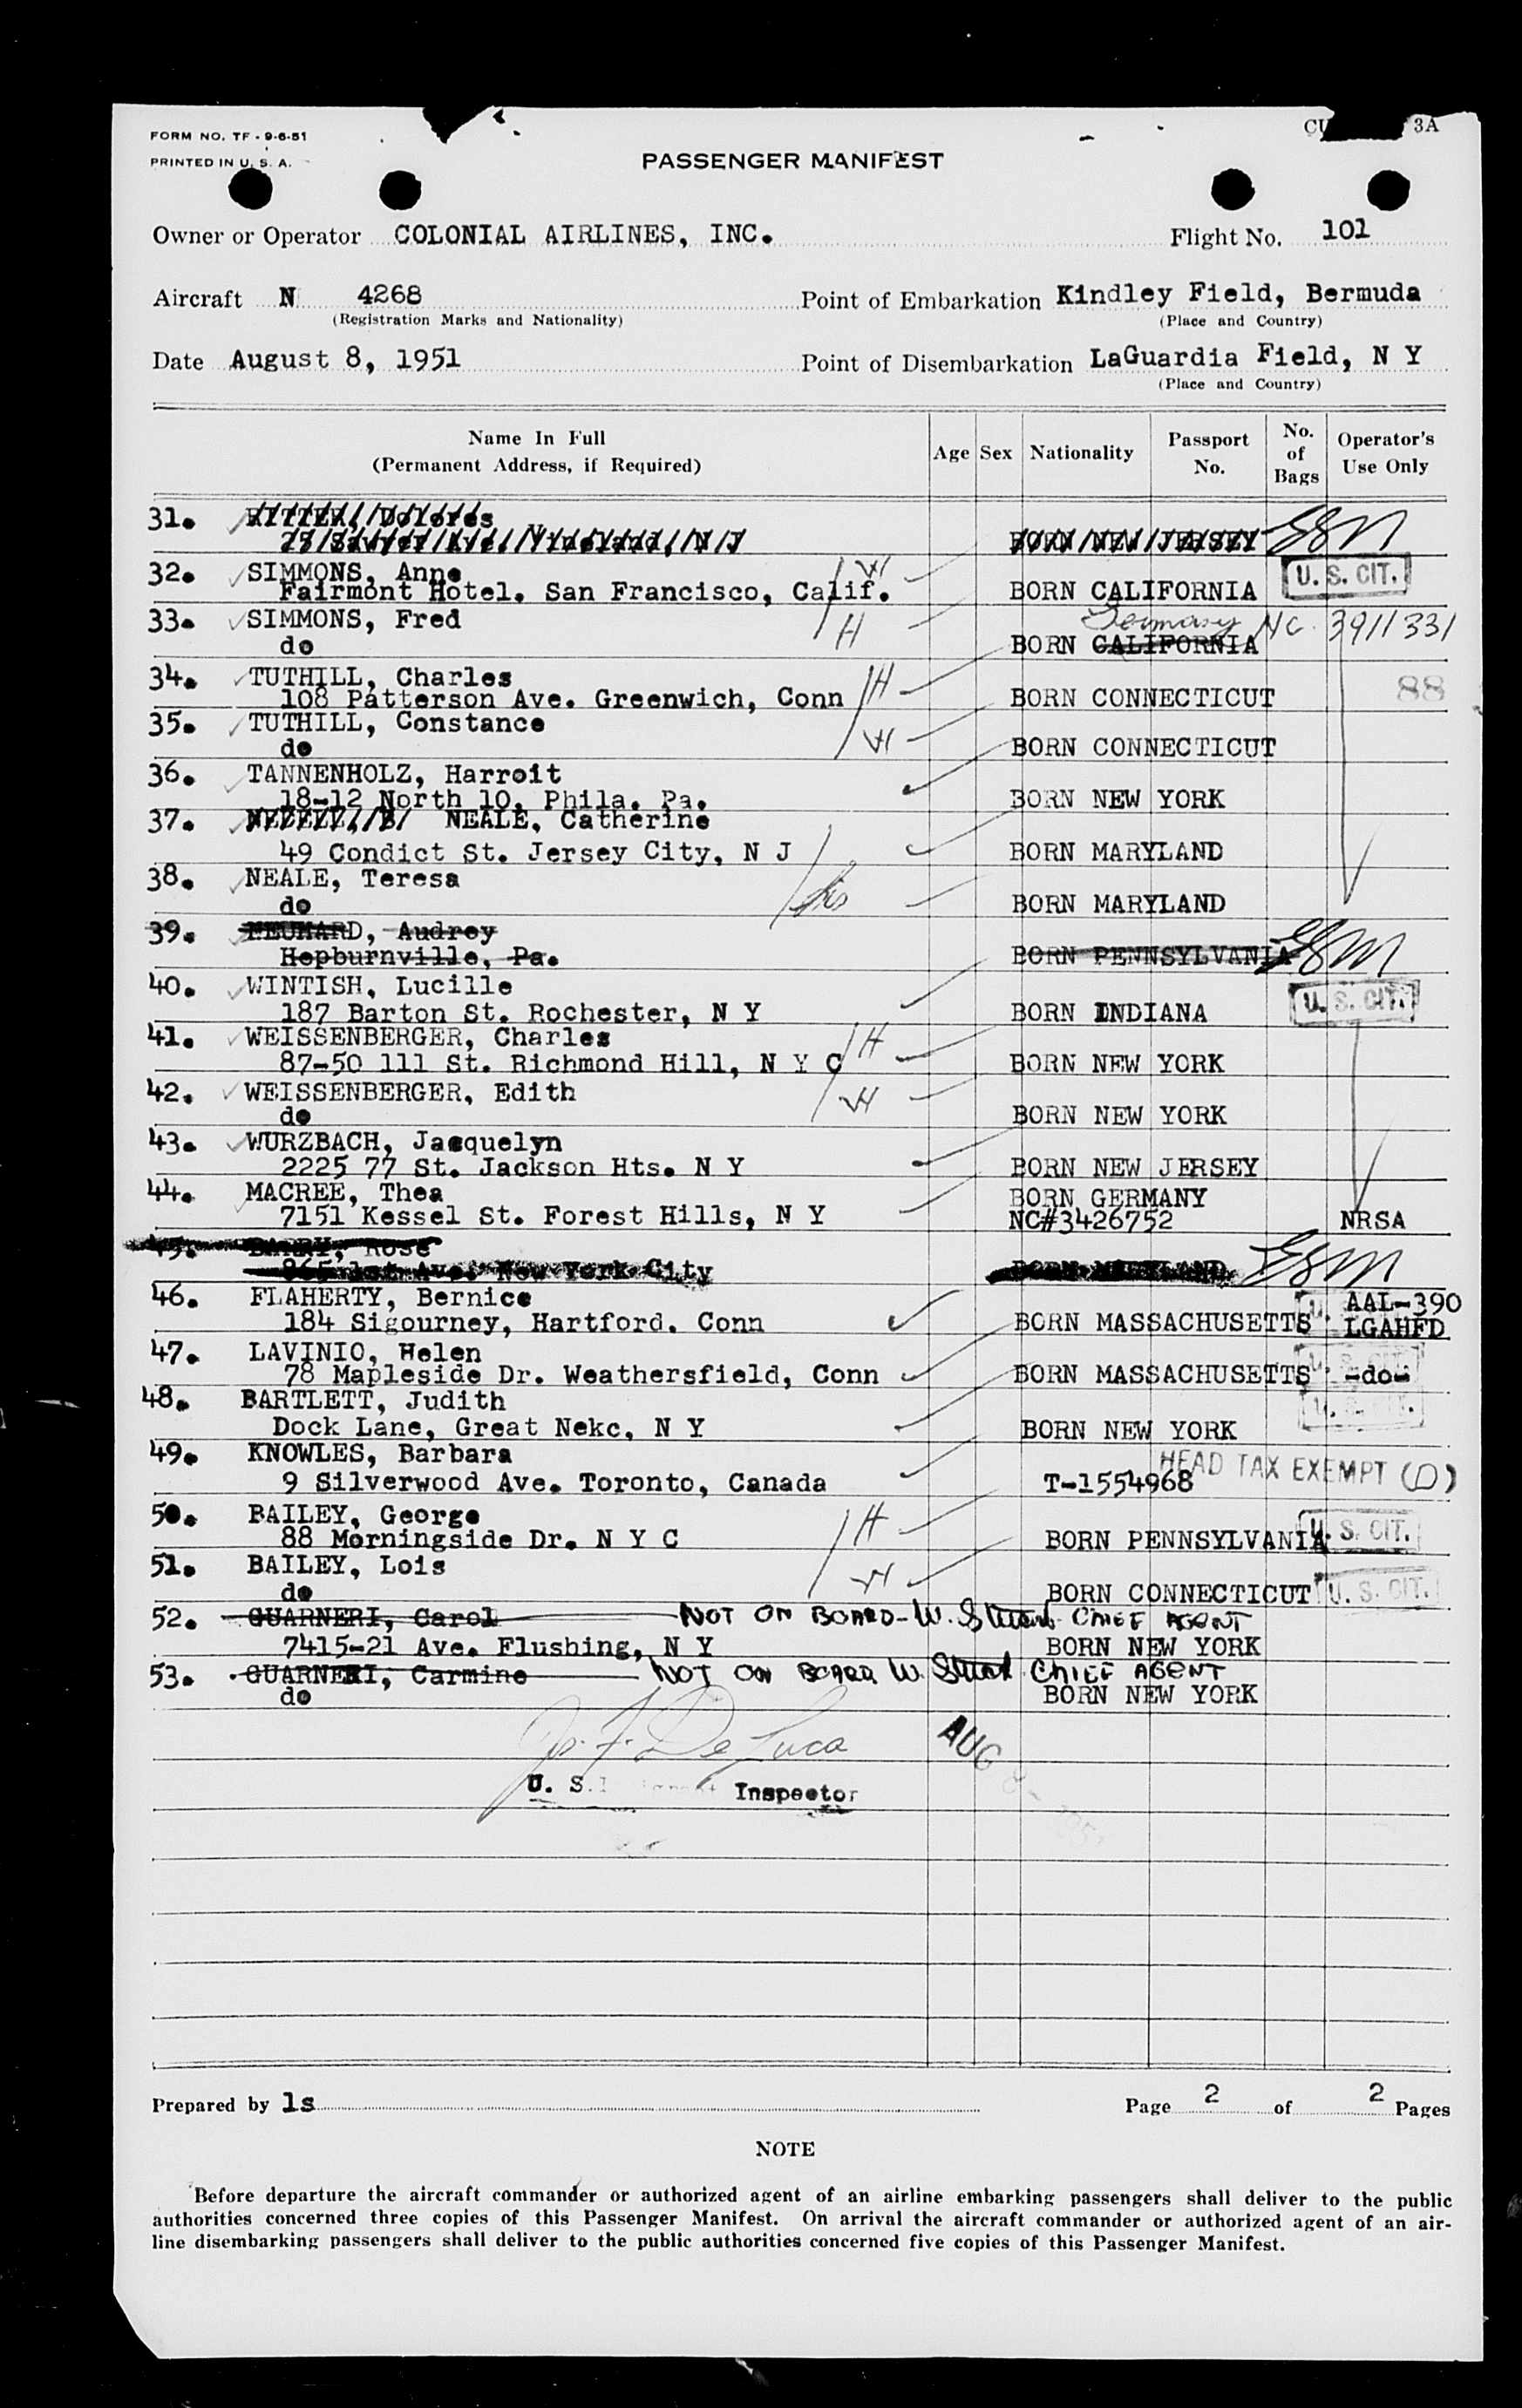 FORM NO. TF - 9-6-51
PRINTED IN U. S. A.
3A
PASSENGER MANIFEST
Owner or Operator COLONIAL AIRLINES, INC. Flight No. 101
Aircraft N 4268 Point of Embarkation Kindley Field, Bermuda
(Registration Marks and Nationality) (Place and Country)
Date August 8, 1951 Point of Disembarkation LaGuardia Field, N Y
(Place and Country)
Name In Full
(Permanent Address, if Required)
Age Sex Nationality Passport No. No. of Bags Operator's Use Only
31. Dolores
N J BORN NEW JERSEY
32. SIMMONS, Anne W
Fairmont Hotel. San Francisco, Calif. BORN CALIFORNIA U. S. CIT.
33. SIMMONS, Fred H Germany NC 3911331
do BORN CALIFORNIA
34. TUTHILL, Charles H
108 Patterson Ave. Greenwich, Conn BORN CONNECTICUT 88
35. TUTHILL, Constance W
do BORN CONNECTICUT
36. TANNENHOLZ, Harroit
18-12 North 10, Phila. Pa. BORN NEW YORK
37. NEALE, Catherine
49 Condict St. Jersey City, N J BORN MARYLAND
38. NEALE, Teresa
do BORN MARYLAND
39. Audrey
Hepburnville, Pa. BORN PENNSYLVANIA
40. WINTISH, Lucille
187 Barton St. Rochester, N Y BORN INDIANA U. S. CIT.
41. WEISSENBERGER, Charles H
87-50 111 St. Richmond Hill, N Y C BORN NEW YORK
42. WEISSENBERGER, Edith W
do BORN NEW YORK
43. WURZBACH, Jacquelyn
2225 77 St. Jackson Hts. N Y BORN NEW JERSEY
44. MACREE, Thea BORN GERMANY
7151 Kessel St. Forest Hills, N Y NC#3426752 NRSA
45. BARRY, Rose
865 1st Ave. New York City BORN MARYLAND
46. FLAHERTY, Bernice AAL-390
184 Sigourney, Hartford. Conn BORN MASSACHUSETTS LGAHFD
47. LAVINIO, Helen U. S. CIT.
78 Mapleside Dr. Weathersfield, Conn BORN MASSACHUSETTS -do-
48. BARTLETT, Judith U. S. CIT.
Dock Lane, Great Nekc, N Y BORN NEW YORK
49. KNOWLES, Barbara HEAD TAX EXEMPT (D)
9 Silverwood Ave. Toronto, Canada T-1554968
50. BAILEY, George H
88 Morningside Dr. N Y C BORN PENNSYLVANIA U. S. CIT.
51. BAILEY, Lois W
do BORN CONNECTICUT U. S. CIT.
52. GUARNERI, Carol NOT ON BOARD - W. CHIEF AGENT
7415-21 Ave. Flushing, N Y BORN NEW YORK
53. GUARNERI, Carmine NOT ON BOARD W. CHIEF AGENT
do BORN NEW YORK
J. F. De Luca AUG 8 - 1951
U. S. Inspector
Prepared by ls Page 2 of 2 Pages
NOTE
Before departure the aircraft commander or authorized agent of an airline embarking passengers shall deliver to the public
authorities concerned three copies of this Passenger Manifest. On arrival the aircraft commander or authorized agent of an air-
line disembarking passengers shall deliver to the public authorities concerned five copies of this Passenger Manifest.